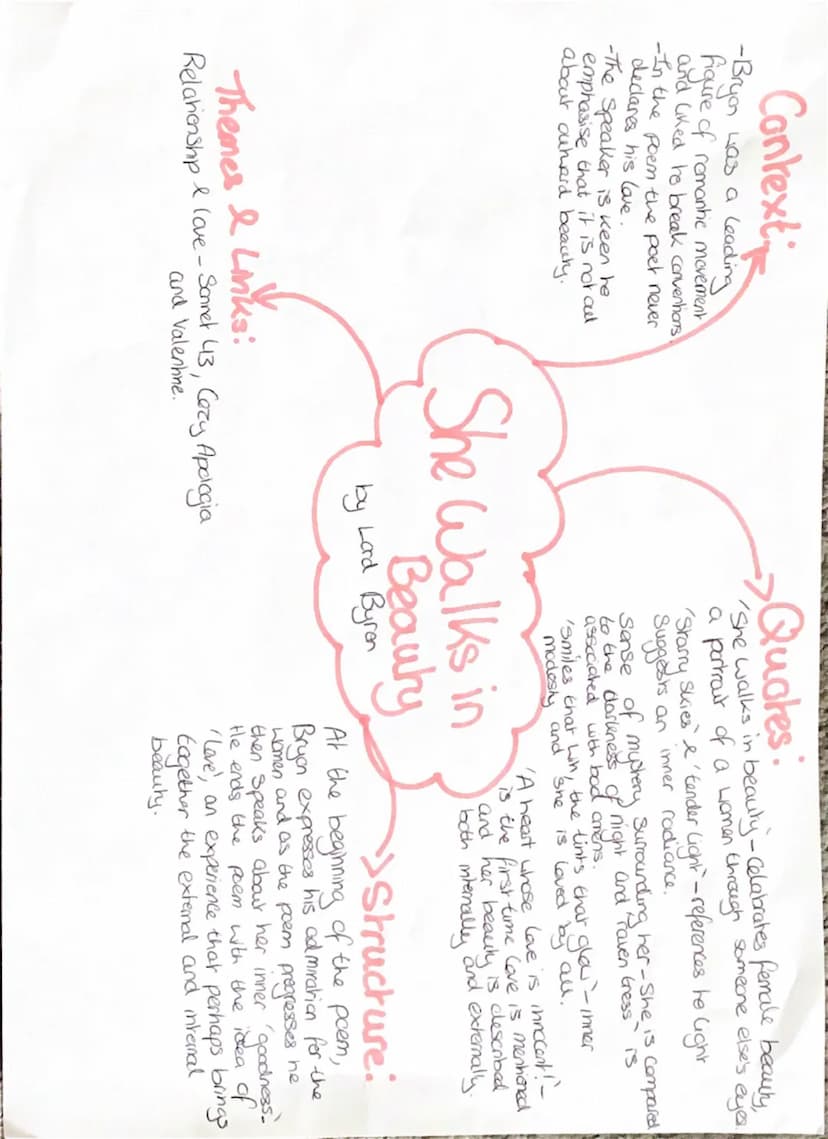 Context:
-Bryon was a leading
figure of romantic movement
and liked to break conventions.
-In the poem the poet never
declares his love.
-The speaker is keen to
emphasise that it is not all
about outward beauty.
Quotes:
'She walks in beauty'-celebrates female beauty,
a portrait of a women through someone else's eyes.
'Starry skies' & 'tender light'-references to light
suggests an inner radiance.
Sense of mystery surrounding her-She is compared
to the darkness of night and 'raven tress' is
associated with bad omens.
'smiles that win, the tints that glow'-inner
modesty and she is loved by all.
'A heart whose love is innocent!'-
is the first time love is mentioned
and her beauty is described
both internally and externally.
She Walks in
Beauty
by Lord Byron
Themes & Links:
Relationship & love - Sonnet 43, Cozy Apologia
and Valentine.
Structure:
At the beginning of the poem,
Bryon expresses his admiration for the
women and as the poem progresses he
then speaks about her inner 'goodness'.
He ends the poem with the idea of
'love', an experience that perhaps brings
together the external and internal
beauty.